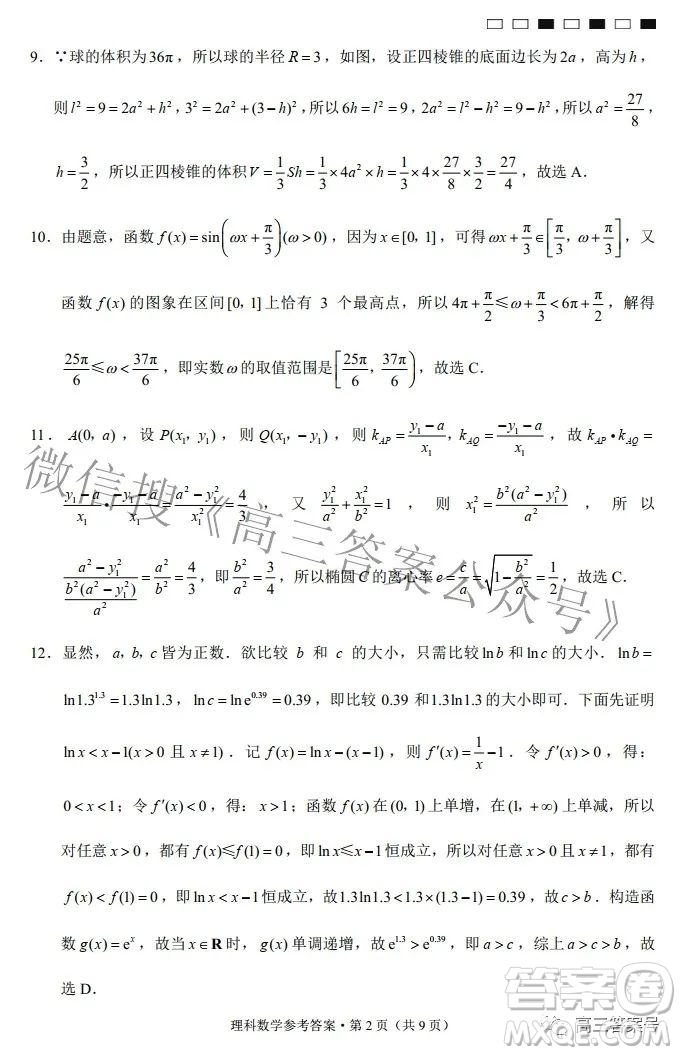 9．∵球的体积为36π，所以球的半径 R=3，如图，设正四棱锥的底面边长为2a，高为h，
则 l²=9=2a²+h²，3²=2a²+(3-h)²，所以 6h=l²=9，2a²=l²-h²=9-h²，所以 a²=27/8，
h=3/2，所以正四棱锥的体积V=1/3Sh=1/3×4a²×h=1/3×4×27/8×3/2=27/4，故选 A．
10．由题意，函数 f(x)=sin(ωx+π/3)(ω>0)，因为 x∈[0，1]，可得 ωx+π/3∈[π/3，ω+π/3]，又
函数 f(x) 的图象在区间[0，1]上恰有 3 个最高点，所以 4π+π/2≤ω+π/3<6π+π/2，解得
25π/6≤ω<37π/6，即实数ω的取值范围是[25π/6，37π/6)，故选 C．
11．A(0，a)，设 P(x₁，y₁)，则 Q(x₁，-y₁)，则 k_AP=(y₁-a)/x₁，k_AQ=(-y₁-a)/x₁，故 k_AP•k_AQ=
(y₁-a)/x₁•(-y₁-a)/x₁=(a²-y₁²)/x₁²=4/3，又 y₁²/a²+x₁²/b²=1，则 x₁²=b²(a²-y₁²)/a²，所以
(a²-y₁²)/(b²(a²-y₁²)/a²)=a²/b²=4/3，即 b²/a²=3/4，所以椭圆 C 的离心率 e=c/a=√(1-b²/a²)=1/2，故选 C．
12．显然，a，b，c 皆为正数．欲比较 b 和 c 的大小，只需比较ln b 和ln c 的大小．ln b=
ln1.3^1.3=1.3ln1.3，ln c=ln e^0.39=0.39，即比较 0.39 和1.3ln1.3 的大小即可．下面先证明
ln x<x-1(x>0 且 x≠1)．记 f(x)=ln x-(x-1)，则 f′(x)=1/x-1．令 f′(x)>0，得：
0<x<1；令 f′(x)<0，得：x>1；函数 f(x) 在(0，1)上单增，在(1，+∞)上单减，所以
对任意 x>0，都有 f(x)≤f(1)=0，即ln x≤x-1恒成立，所以对任意 x>0且 x≠1，都有
f(x)<f(1)=0，即ln x<x-1恒成立，故1.3ln1.3<1.3×(1.3-1)=0.39，故c>b．构造函
数 g(x)=e^x，故当 x∈R 时，g(x) 单调递增，故 e^1.3>e^0.39，即 a>c，综上 a>c>b，故
选 D．
微信搜《高三答案公众号》
理科数学参考答案·第 2 页（共 9 页）
高三答案号
答案圈
MXQE.COM